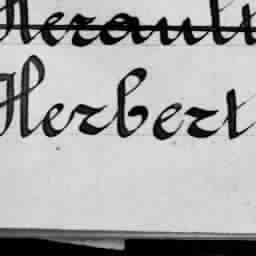 Herault
Herbert